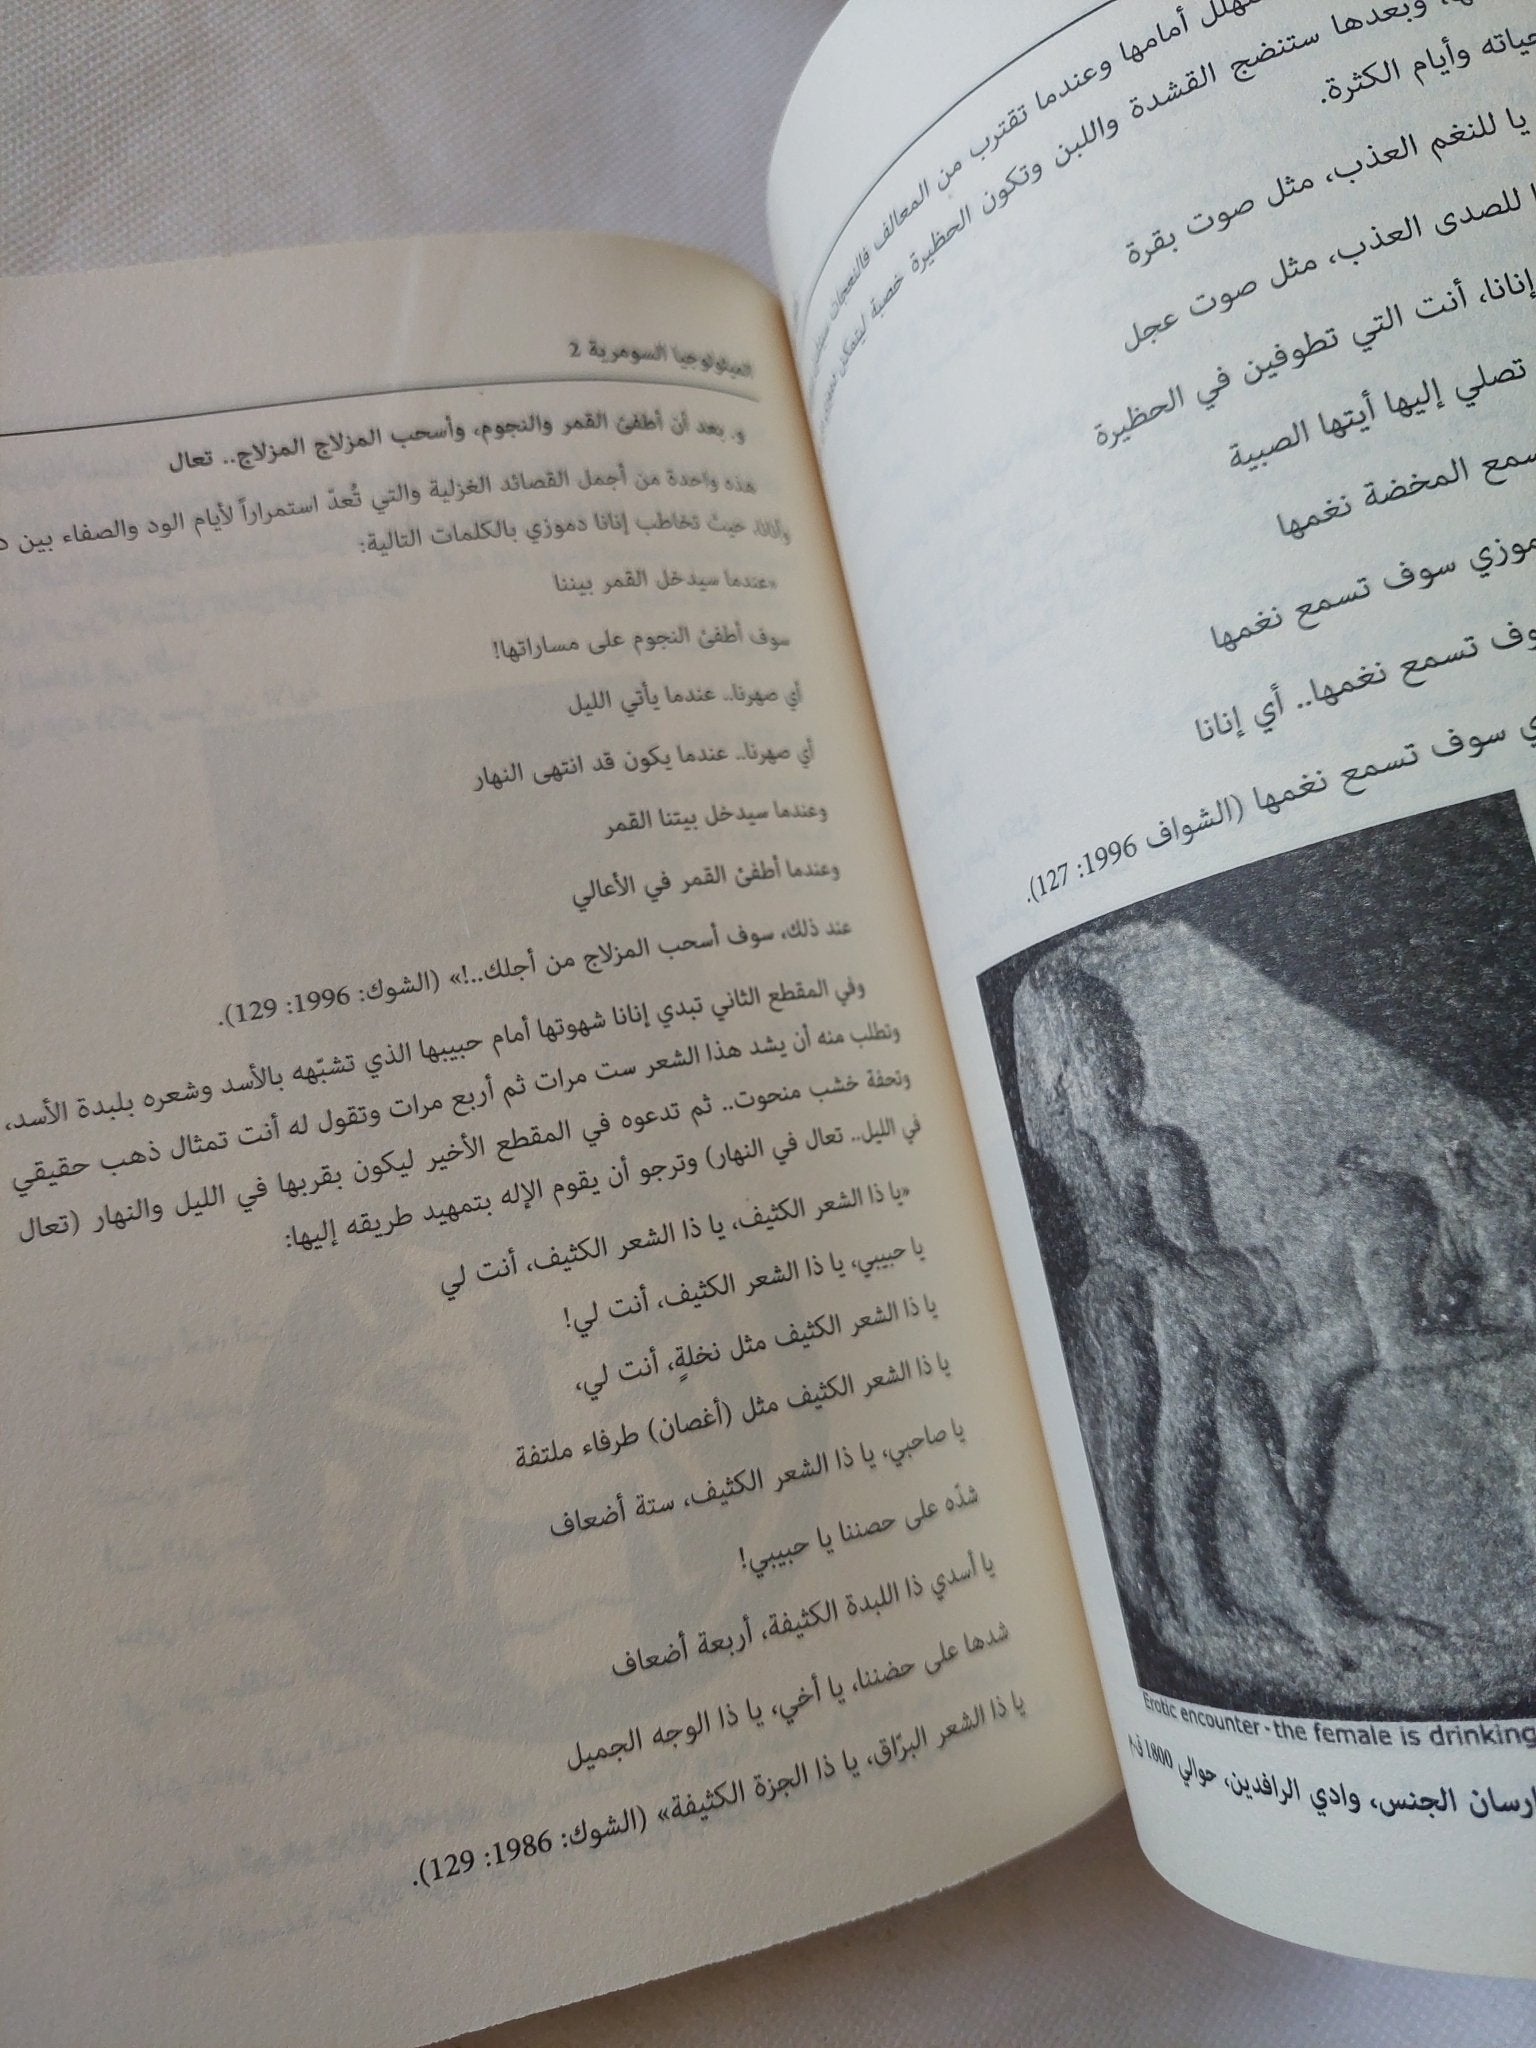 تهلل أمامها وعندما تقترب من المعالف فالنعجات
وبعدها ستنضج القشدة واللبن وتكون الحظيرة خصبة ليتمكن
حياته وأيام الكثرة.
يا للنغم العذب، مثل صوت بقرة
للصدى العذب، مثل صوت عجل
إنانا، أنت التي تطوفين في الحظيرة
تصلي إليها أيتها الصبية
المخضة نغمها
سوف تسمع نغمها
تسمع نغمها.. أي إنانا
سوف تسمع نغمها (الشواف 1996: 127).
Erotic encounter - the female is drinking
الجنس، وادي الرافدين، حوالي 1800
الميثولوجيا السومرية 2
و. بعد أن أطفئ القمر والنجوم، وأسحب المزلاج المزلاج.. تعال
هذه واحدة من أجمل القصائد الغزلية والتي تُعدّ استمراراً لأيام الود والصفاء بين
وأنانا، حيث تخاطب إنانا دموزي بالكلمات التالية:
«عندما سيدخل القمر بيننا
سوف أطفئ النجوم على مساراتها!
أي صهرنا.. عندما يأتي الليل
أي صهرنا.. عندما يكون قد انتهى النهار
وعندما سيدخل بيتنا القمر
وعندما أطفئ القمر في الأعالي
عند ذلك، سوف أسحب المزلاج من أجلك..!» (الشوك: 1996: 129).
وفي المقطع الثاني تبدي إنانا شهوتها أمام حبيبها الذي تشبّهه بالأسد وشعره بلبدة الأسد،
وتطلب منه أن يشد هذا الشعر ست مرات ثم أربع مرات وتقول له أنت تمثال ذهب حقيقي
وتحفة خشب منحوت.. ثم تدعوه في المقطع الأخير ليكون بقربها في الليل والنهار (تعال
في الليل.. تعال في النهار) وترجو أن يقوم الإله بتمهيد طريقه إليها:
«يا ذا الشعر الكثيف، يا ذا الشعر الكثيف، أنت لي
يا حبيبي، يا ذا الشعر الكثيف، أنت لي!
يا ذا الشعر الكثيف مثل نخلةٍ، أنت لي،
يا ذا الشعر الكثيف مثل (أغصان) طرفاء ملتفة
يا صاحبي، يا ذا الشعر الكثيف، ستة أضعاف
شدّه على حصننا يا حبيبي!
يا أسدي ذا اللبدة الكثيفة، أربعة أضعاف
شدها على حضننا، يا أخي، يا ذا الوجه الجميل
يا ذا الشعر البرّاق، يا ذا الجزة الكثيفة» (الشوك: 1986: 129).